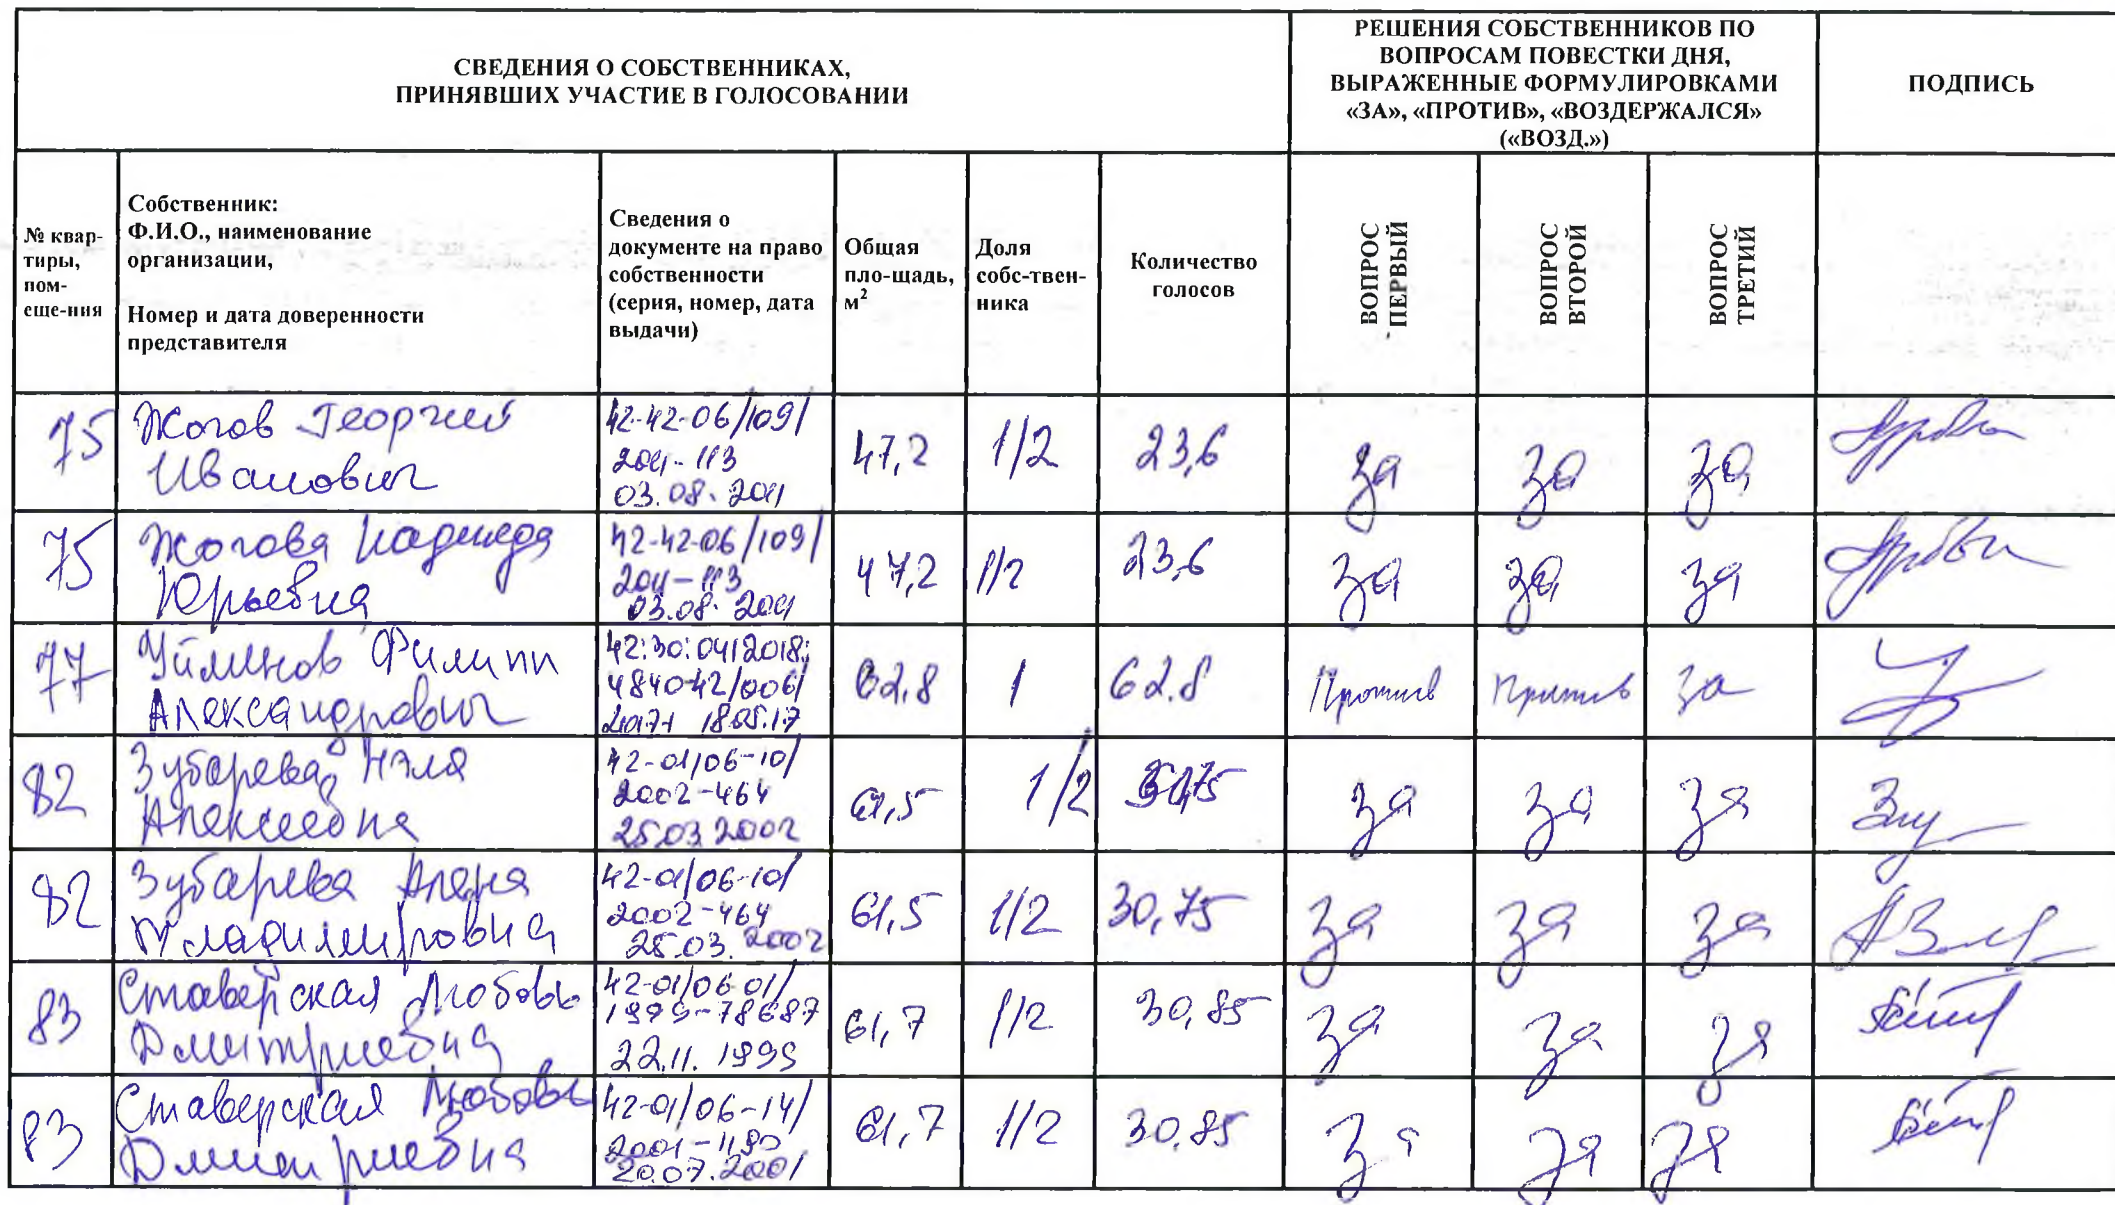 СВЕДЕНИЯ О СОБСТВЕННИКАХ,
ПРИНЯВШИХ УЧАСТИЕ В ГОЛОСОВАНИИ
РЕШЕНИЯ СОБСТВЕННИКОВ ПО
ВОПРОСАМ ПОВЕСТКИ ДНЯ,
ВЫРАЖЕННЫЕ ФОРМУЛИРОВКАМИ
«ЗА», «ПРОТИВ», «ВОЗДЕРЖАЛСЯ»
(«ВОЗД.»)
ПОДПИСЬ
№ квар-
тиры,
пом-
еще-ния
Собственник:
Ф.И.О., наименование
организации,
Номер и дата доверенности
представителя
Сведения о
документе на право
собственности
(серия, номер, дата
выдачи)
Общая
пло-щадь,
м²
Доля
собс-твен-
ника
Количество
голосов
ВОПРОС
ПЕРВЫЙ
ВОПРОС
ВТОРОЙ
ВОПРОС
ТРЕТИЙ
75
Жогов Георгий
Иванович
42-42-06/109/
2011-113
03.08.2011
47,2
1/2
23,6
за
за
за
75
Жогова Надежда
Юрьевна
42-42-06/109/
2011-113
03.08.2011
47,2
1/2
23,6
за
за
за
77
Уйманов Филипп
Александрович
42:30:0412018:
4840-42/006/
2017-1 18.05.17
62,8
1
62.8
Против
Против
за
82
Зубарева Нэля
Алексеевна
42-01/06-10/
2002-464
25.03 2002
61,5
1/2
за
за
за
82
Зубарева Алена
Владимировна
42-01/06-10/
2002-464
25.03.2002
61,5
1/2
30,75
за
за
за
83
Ставерская Любовь
Дмитриевна
42-01/06-01/
1999-78687
22.11.1999
61,7
1/2
30,85
за
за
за
83
Ставерская Любовь
Дмитриевна
42-01/06-14/
2001-1190
20.07.2001
61,7
1/2
30,85
за
за
за